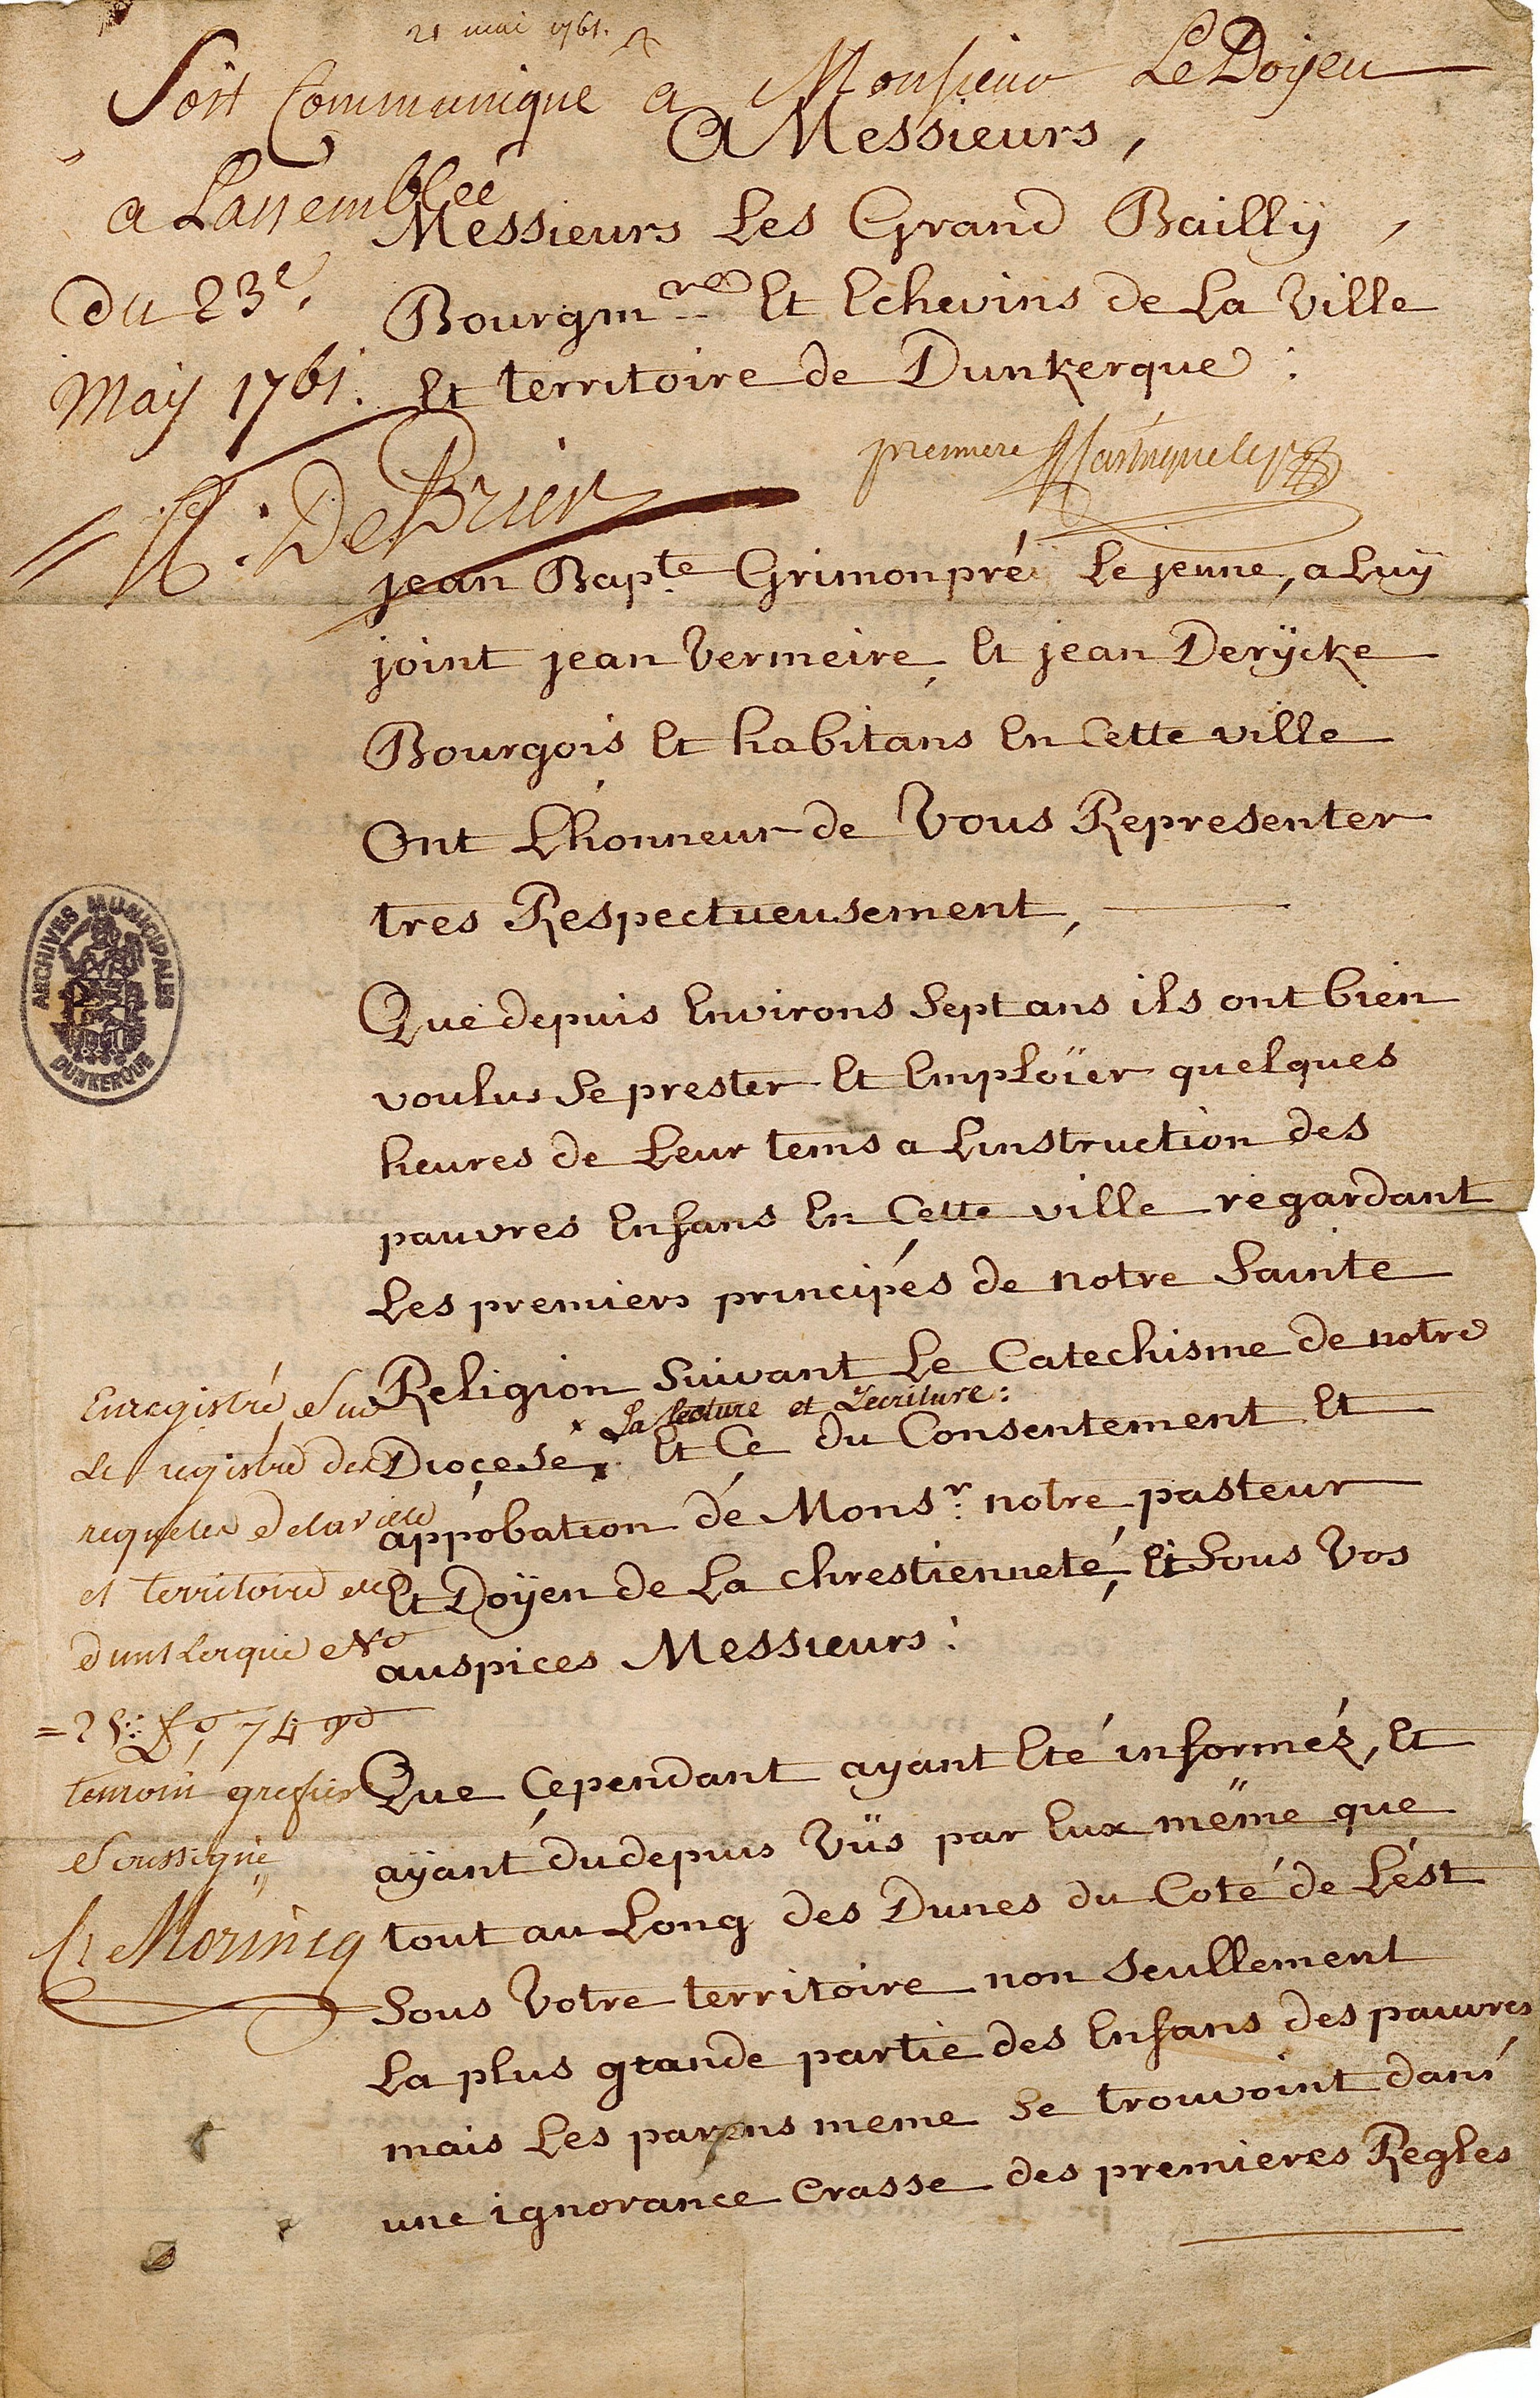 21 mai 1761.
Soit Communiqué a Monsieur Le Doijen
a Lassembleé
du 23e.
Maij 1761.
A Messieurs,
Messieurs Les Grand Bailly,
Bourgmre Et Echevins de La Ville
Et territoire de Dunkerque:
premiere
DeBrier
jean Bapte Grimonpré Le jeune, a Luy
joint jean Vermeire, Et jean Derÿcke
Bourgois Et habitans En Cette ville
Ont Lhonneur de Vous Representer
tres Respectueusement,
Que depuis Environs Sept ans ils ont bien
voulus Se prester Et Emploïer quelques
heures de Leur tems a Linstruction des
pauvres Enfans En Cette ville regardant
Les premiers principés de notre Sainte
Religion Suivant Le Catechisme de notre
x La lecture et Lecriture:
Dioçese, x Et Ce du Consentement Et
appobation dé Monsr. notre pasteur
Et Doÿen de La chrestienneté, Et Sous Vos
auspices Messieurs:
Que Cependant ayant Eté informéz, Et
aÿant dudepuis Vüs par Eux même que
tout au Long des Dunes du Coté de Lést
Sous Votre territoire non Seullement
La plus grande partie des Enfans des pauvres
mais Les parens meme Se trouvoint dans
une ignorance Crasse des premieres Regles
Enregistré Sur
Le registre des
requetes de la ville
et territoire de
dunkerque No
fo 74 vo
temoin grefier
Soussigné
Morincq
ARCHIVES MUNICIPALES
DUNKERQUE